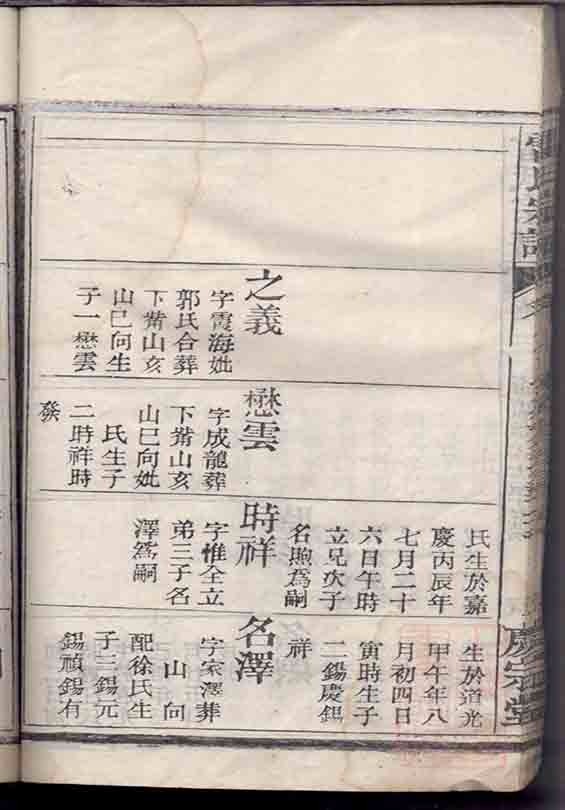 氏宗譜
慶宗堂
之義
字霞海妣
郭氏合葬
下嵴山亥
山巳向生
子一懋雲
懋雲
字成龍葬
下嵴山亥
山巳向妣
氏生子
二時祥時
發
氏生於嘉
慶丙辰年
七月二十
六日午時
立兄次子
名煦爲嗣
時祥
字惟全立
弟三子名
澤爲嗣
生於道光
甲午年八
月初四日
寅時生子
二錫慶錫
祥
名澤
字家澤葬
山向
配徐氏生
子三錫元
錫禎錫有